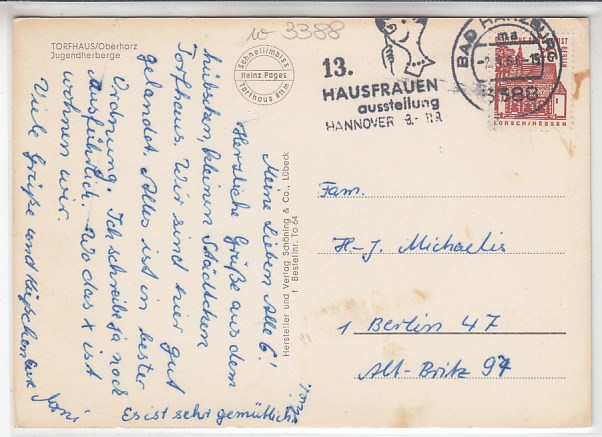 w 3388
TORFHAUS/Oberharz
Jugendherberge
Schnellimbiss
Heinz Pages
Torfhaus 811m
13.
HAUSFRAUEN
ausstellung
HANNOVER
BAD HARZBURG
ma
3388
DEUTSCHE BUNDESPOST
BERLIN
LORSCH/HESSEN
Meine lieben Alle 6!
Herzliche Grüße aus dem
hübschen kleinen Städtchen
Torfhaus. Wir sind hier gut
gelandet. Alles ist in bester
Ordnung. Ich schreibe ja noch
ausführlich. Wo das x ist
wohnen wir.
Viele Grüße und Küßchen eure
Es ist sehr gemütlich
Hersteller und Verlag Schöning & Co., Lübeck
1 Bestellnr. To 64
Fam.
H.-J. Michaelis
1 Berlin 47
Alt-Britz 97